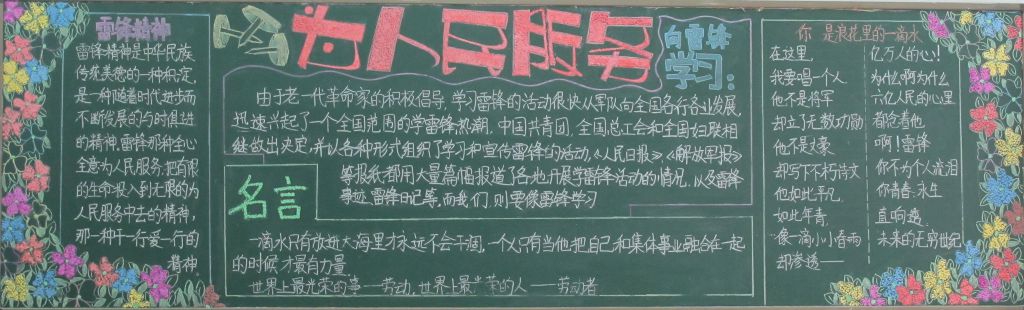 雷锋精神
雷锋精神是中华民族
传统美德的一种积淀,
是一种随着时代进步而
不断发展的与时俱进
的精神,雷锋那种全心
全意为人民服务,把有限
的生命投入到无限的为
人民服务中去的精神,
那一种干一行爱一行的
精神
为人民服务
向雷锋
学习:
由于老一代革命家的积极倡导,学习雷锋的活动很快从军队向全国各行各业发展,
迅速兴起了一个全国范围的学雷锋热潮,中国共青团,全国总工会和全国妇联相
继做出决定,并以各种形式组织了学习和宣传雷锋的活动,《人民日报》《解放军报》
等报纸都用大量篇幅报道了各地开展学雷锋活动的情况,以及雷锋
事迹,雷锋日记等,而我们,则要像雷锋学习
名言
一滴水只有放进大海里才永远不会干涸,一个人只有当他把自己和集体事业融合在一起
的时候才最有力量
世界上最光荣的事——劳动,世界上最光荣的人——劳动者
你 是浪花里的一滴水
在这里,
我要唱一个人
他不是将军
却立了无数功勋
他不是文豪
却写下不朽诗文
他如此平凡
如此年青,
像一滴小小春雨
却渗透——
亿万人的心!
为什么啊为什么
六亿人民的心里
都念着他
啊!雷锋
你不为个人流泪
你青春永生
直响透,
未来的无穷世纪